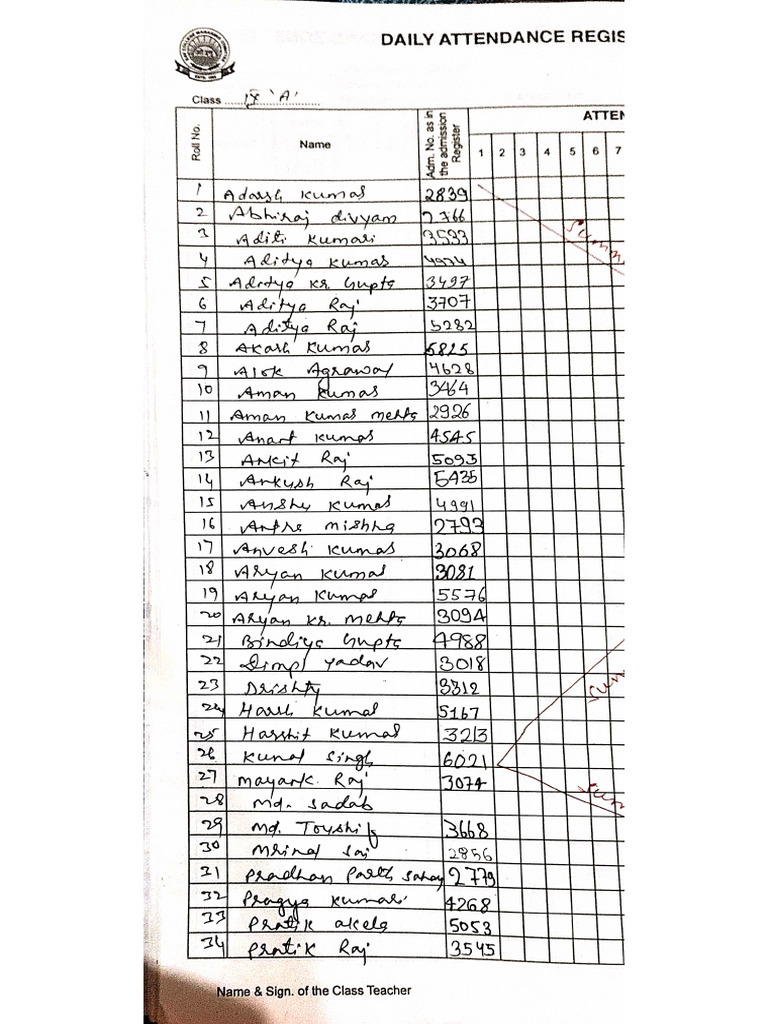 DAILY ATTENDANCE REGIS
Class 'A'
Roll No. Name Adm. No. as in the admission Register ATTEN
1 2 3 4 5 6 7
1 Adarsh Kumar 2839
2 Abhiraj divyam 2766
3 Aditi Kumari 3533
4 Aditya Kumar 4974
5 Aditya Kr. Gupta 3497
6 Aditya Raj 3707
7 Aditya Raj 5282
8 Akash Kumar 5825
9 Alok Agrawal 4628
10 Aman Kumar 3464
11 Aman Kumar Mehta 2926
12 Anant Kumar 4545
13 Ankit Raj 5093
14 Ankush Raj 5435
15 Anshu Kumar 4991
16 mishra 2793
17 Anvesh Kumar 3068
18 Aryan Kumar 3081
19 Aryan Kumar 5576
20 Aryan Kr. Mehta 3094
21 Bindiya Gupta 4988
22 Dimpl Yadav 3018
23 Drishty 3312
24 Harsh Kumar 5167
25 Harshit Kumar 3213
26 Kunal Singh 6021
27 Mayank Raj 3074
28 Md. Sadab
29 Md. Toyshif 3668
30 Mrinal 2856
31 Pradhan Parth Sahay 2779
32 Pragya Kumari 4268
33 Pratik akela 5053
34 Pratik Raj 3545
Name & Sign. of the Class Teacher